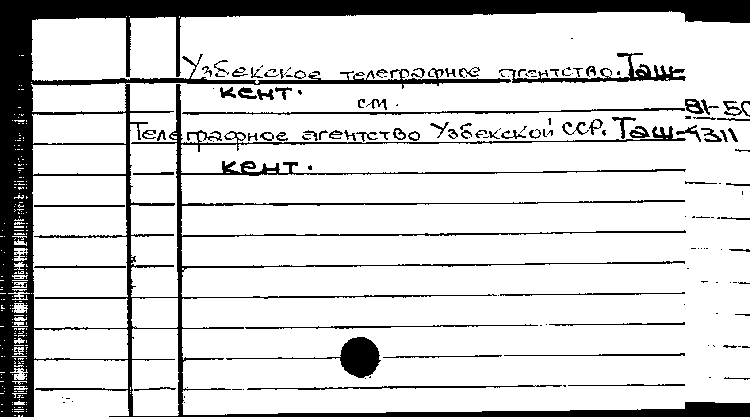 Узбекское телеграфное агентство. Таш-
кент.
см.
Телеграфное агентство Узбекской ССР. Таш-
кент.
81-50
4311